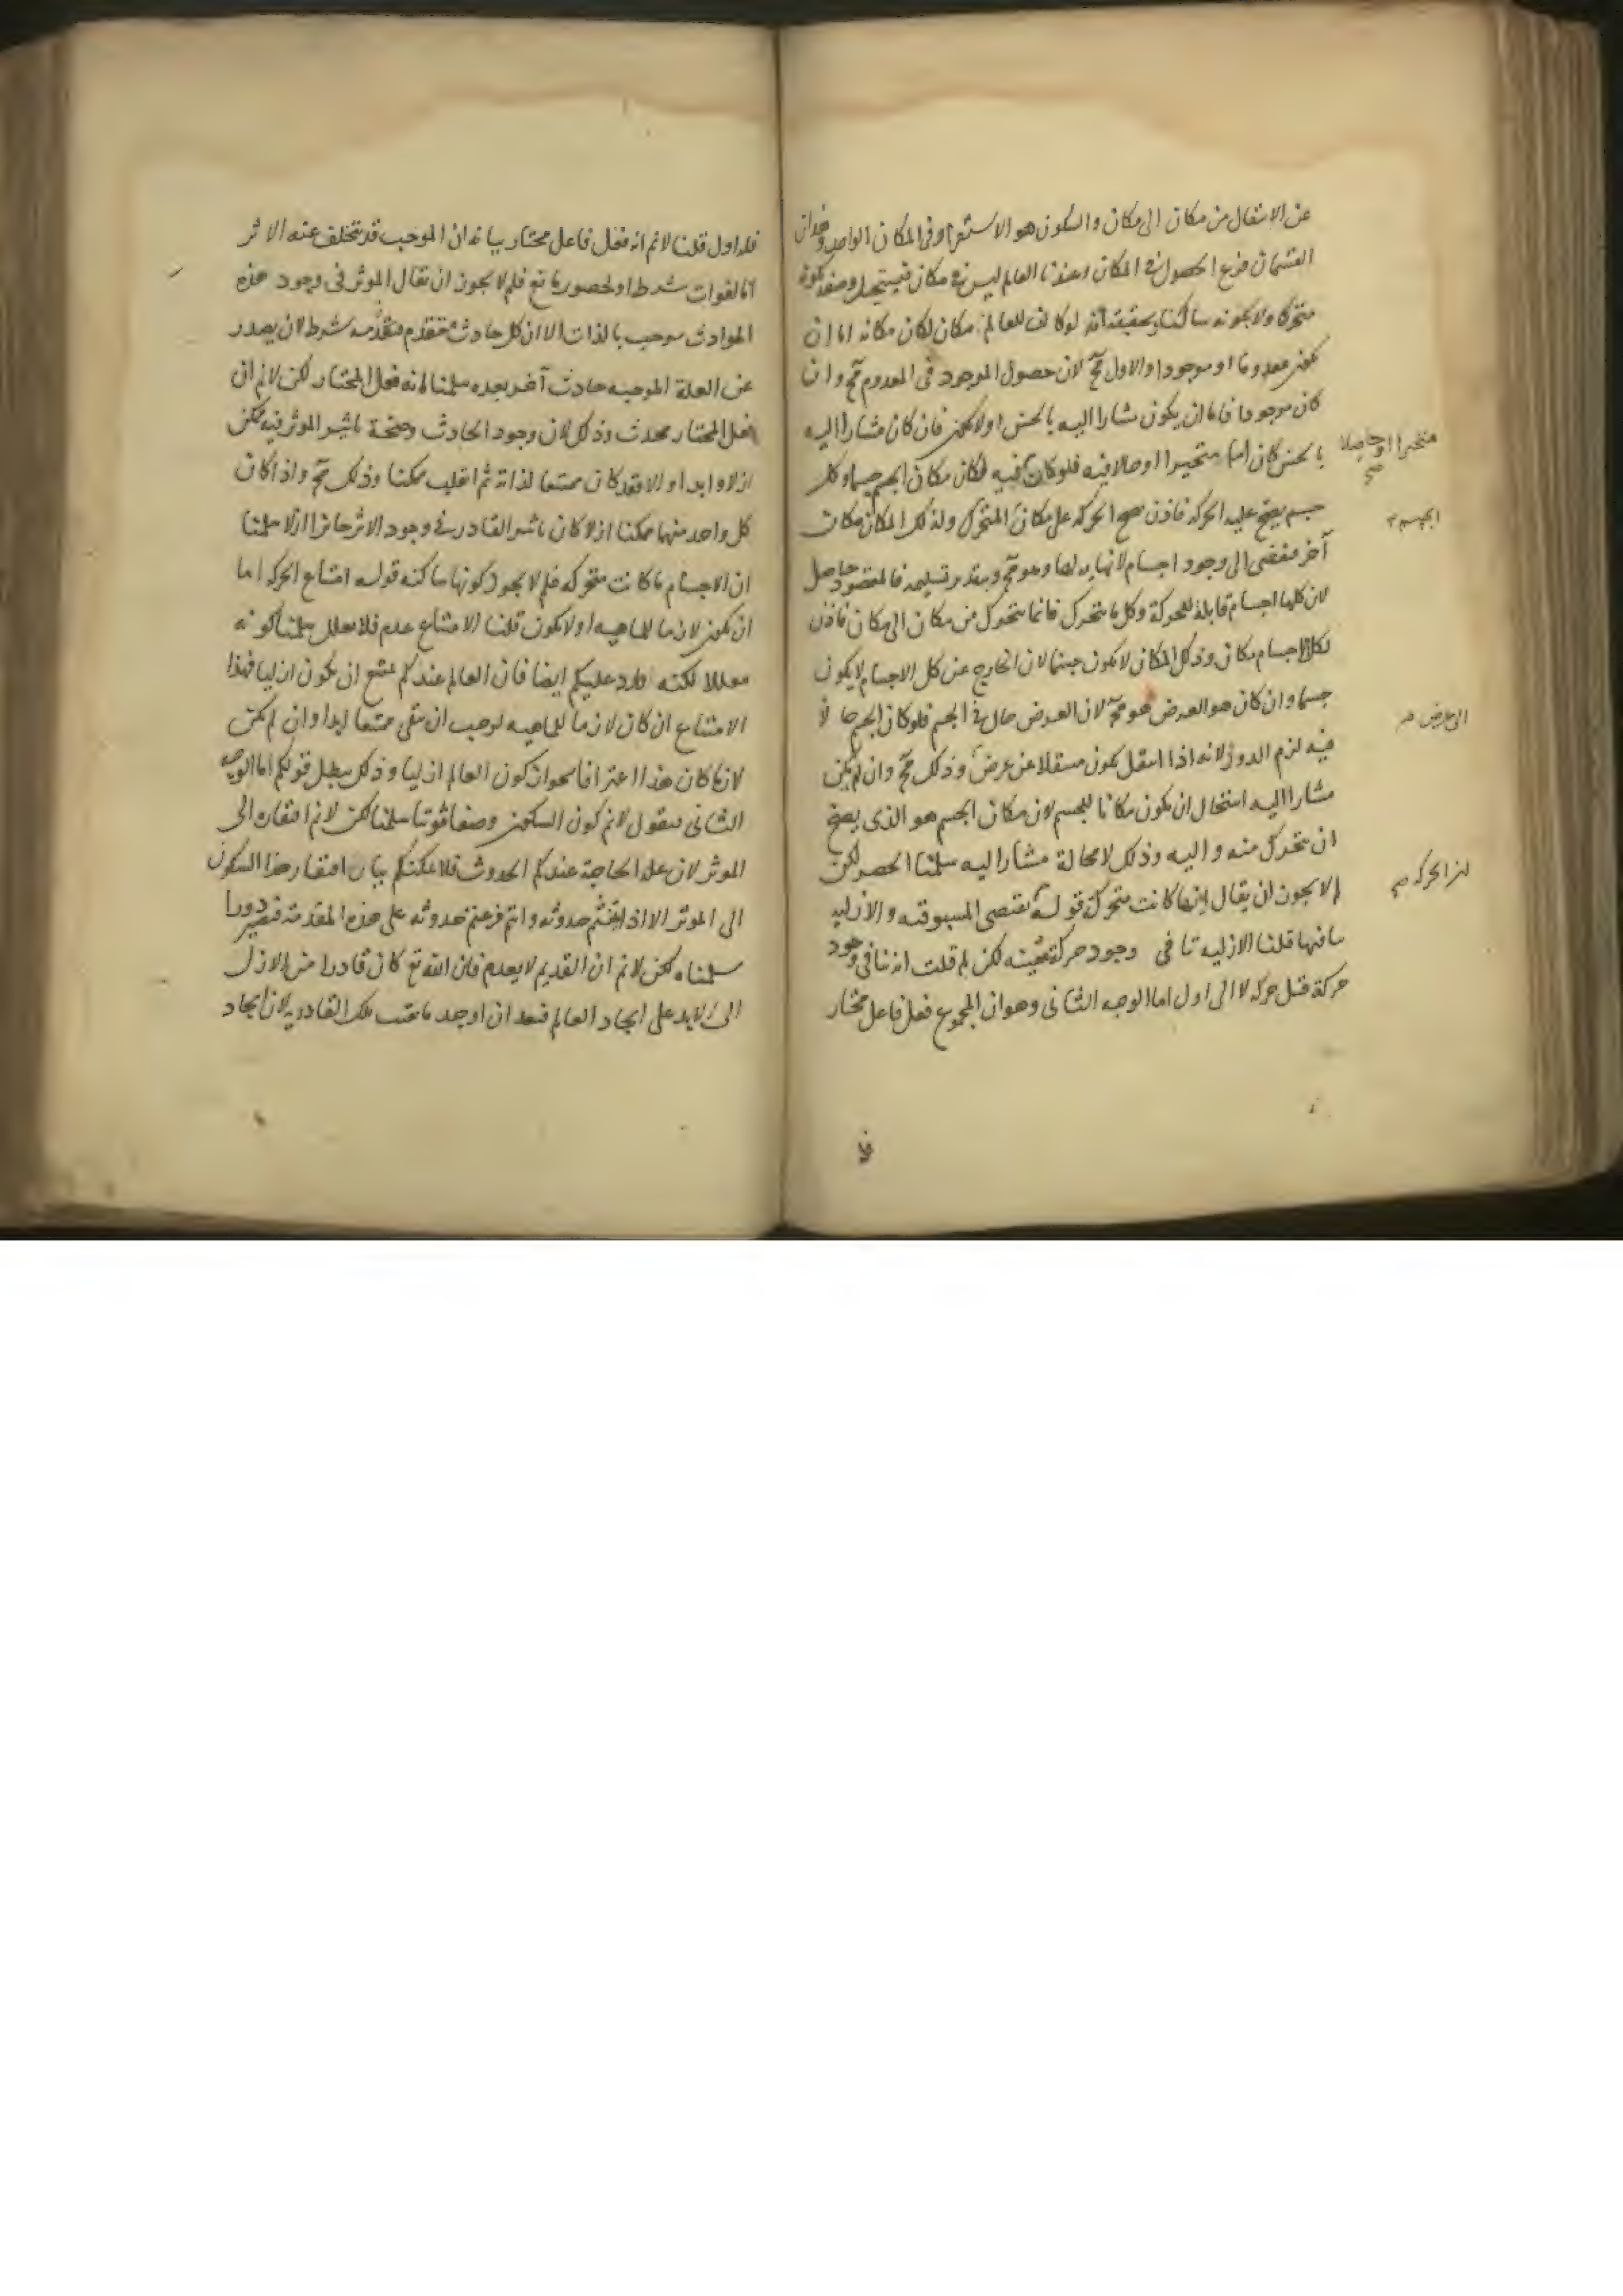 عن الانتقال من مكان الى مكان والسكون هو الاستقرار فى المكان الواحد وهذان
القسمان فرع الحصول فى المكان وعندنا العالم ليس فى مكان فيستحيل وصفه بكونه
متحركا ولا بكونه ساكنا وتحقيقه انه لو كان للعالم مكان لكان مكانه اما ان
يكون معدوما او موجودا والاول مح لان حصول الموجود فى المعدوم مح وان
كان موجودا فاما ان يكون مشارا اليه بالحس او لا يكون فان كان مشارا اليه
بالحس كان اما متحيزا او حالا فيه فلو كان فيه لكان مكان الجسم جسما وكل
متحيزا او حاصلا صح
جسم يصح عليه الحركة فاذن صح الحركة على مكان المتحرك ولذلك المكان مكان
الجسم
آخر فيفضى الى وجود اجسام لا نهاية لها وهو مح وبتقدير تسليمه فالمقصود حاصل
لان كلها اجسام قابلة للحركة وكل ما يتحرك فانما يتحرك من مكان الى مكان فاذن
لكل الاجسام مكان وذلك المكان لا يكون جسما لان الخارج عن كل الاجسام لا يكون
جسما وان كان هو العرض فهو مح لان العرض حال فى الجسم فلو كان الجسم حالا
الى عرض
فيه لزم الدور لانه اذا انتقل يكون منتقلا عن عرض وذلك مح وان لم يكن
مشارا اليه استحال ان يكون مكانا للجسم لان مكان الجسم هو الذى يصح
ان يتحرك منه واليه وذلك لا محالة مشارا اليه سلمنا الحصر لكن
لم لا يجوز ان يقال انها كانت متحركة قوله يقتضى المسبوقية والازلية
ان الحركة صح
تنافيها قلنا الازلية تنافى وجود حركة معينه لكن لم قلت انه تنافى وجود
حركة قبل حركة لا الى اول اما الوجه الثانى وهو ان المجموع فعل فاعل مختار
فلا
فله اول قلنا لا نم انه فعل فاعل مختار بيانه ان الموجب قد يتخلف عنه الاثر
اما لفوات شرط او لحضور مانع فلم لا يجوز ان يقال الموثر فى وجود هذه
الحوادث موجب بالذات الا ان كل حادث متقدم فتقدمه شرط لان يصدر
عن العلة الموجبه حادث آخر بعده سلمنا انه فعل المختار لكن لا نم ان
فعل المختار محدث وذلك لان وجود الحادث وصحة تاثير الموثر فيه ممكن
ازلا وابدا والا فقد كان ممتنعا لذاته ثم انقلب ممكنا وذلك مح واذا كان
كل واحد منهما ممكنا ازلا كان تاثير القادر فى وجود الاثر جائزا ازلا سلمنا
ان الاجسام ما كانت متحركة فلم لا يجوز كونها ساكنه قوله امتناع الحركة اما
ان يكون لازما للماهيه او لا يكون قلنا الامتناع عدم فلا يعلل سلمنا كونه
معللا لكنه وارد عليكم ايضا فان العالم عندكم ممتنع ان يكون ازليا فهذا
الامتناع ان كان لازما للماهيه لوجب ان يبقى ممتنعا ابدا وان لم يكن
لازما كان هذا اعترافا بجواز كون العالم ازليا وذلك يبطل قولكم اما الوجه
الثانى فنقول لا نم كون السكون وصفا ثبوتيا سلمنا لكن لا نم افتقاره الى
الموثر لان علة الحاجة عندكم الحدوث فلا يمكنكم بيان افتقار هذا السكون
الى الموثر الا اذا بينتم حدوثه وانتم فرعتم حدوثه على هذه المقدمة فيصير دورا
سلمناه لكن لا نم ان القديم لا يعدم فان الله تع كان قادرا من الازل
الى الابد على ايجاد العالم فبعد ان اوجد ما بقيت تلك القادرية لان ايجاد